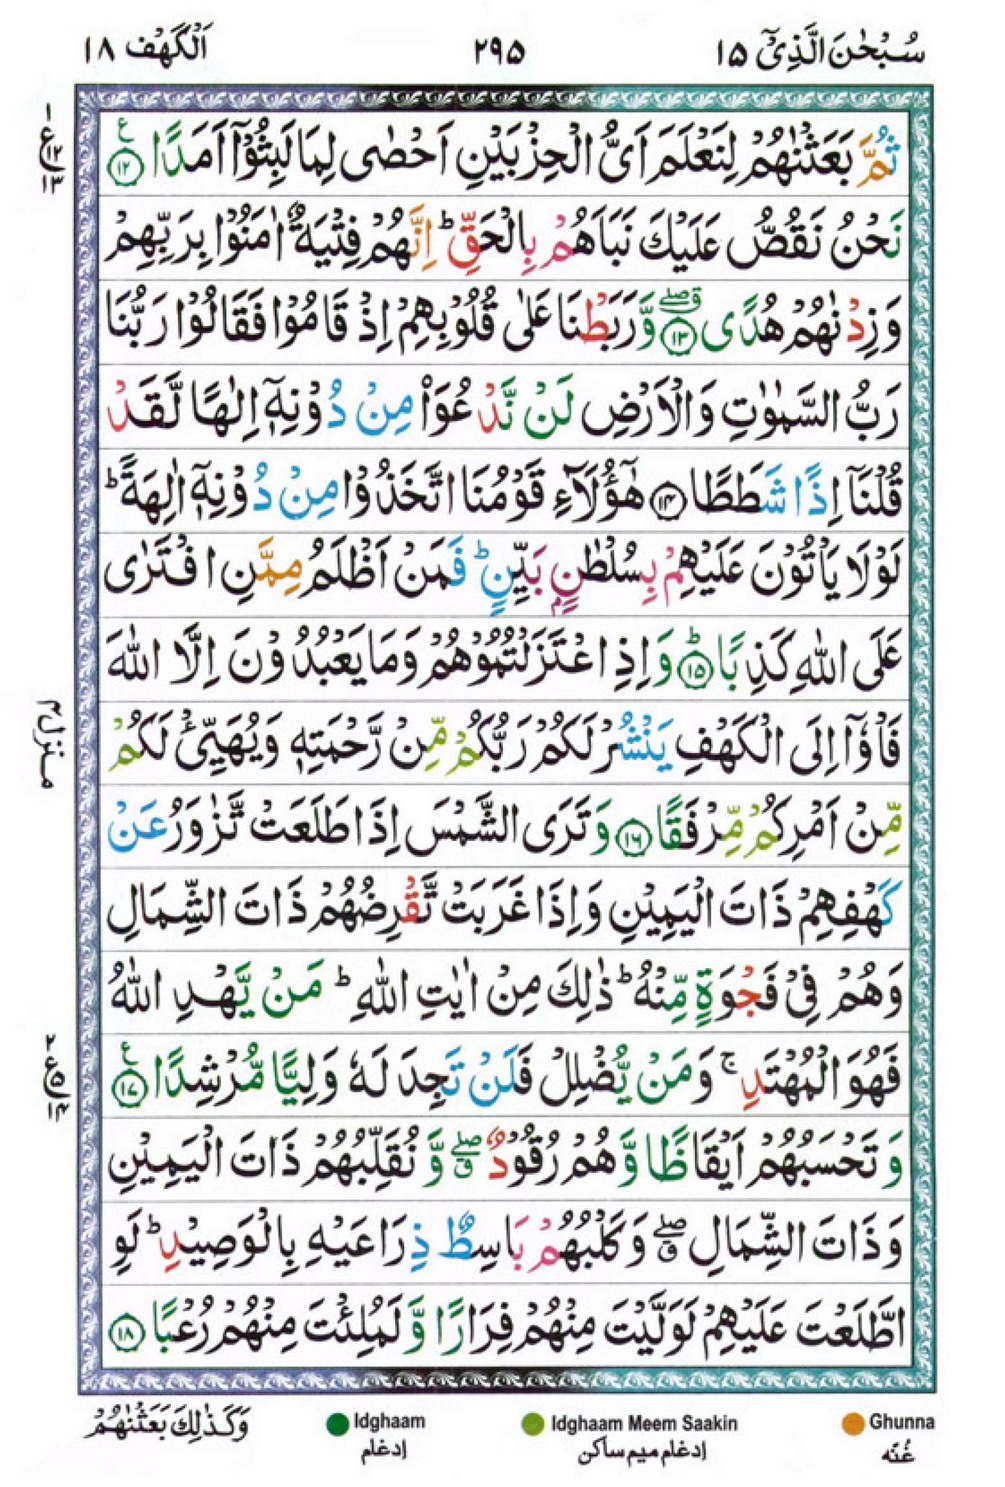 سُبْحٰنَ الَّذِیْۤ ۱۵
۲۹۵
اَلْكَهْف ۱۸
ثُمَّ بَعَثْنٰهُمْ لِنَعْلَمَ اَیُّ الْحِزْبَیْنِ اَحْصٰى لِمَا لَبِثُوْۤا اَمَدًا ع ۱۲
۱
ع ۱۲
۱۳
نَحْنُ نَقُصُّ عَلَیْكَ نَبَاَهُمْ بِالْحَقِّ ؕ اِنَّهُمْ فِتْیَةٌ اٰمَنُوْا بِرَبِّهِمْ
وَ زِدْنٰهُمْ هُدًى ۱۳ ۖق وَّ رَبَطْنَا عَلٰى قُلُوْبِهِمْ اِذْ قَامُوْا فَقَالُوْا رَبُّنَا
رَبُّ السَّمٰوٰتِ وَ الْاَرْضِ لَنْ نَّدْعُوَاۡ مِنْ دُوْنِهٖۤ اِلٰهًا لَّقَدْ
قُلْنَاۤ اِذًا شَطَطًا ۱۴ هٰۤؤُلَآءِ قَوْمُنَا اتَّخَذُوْا مِنْ دُوْنِهٖۤ اٰلِهَةً ؕ
لَوْ لَا یَاْتُوْنَ عَلَیْهِمْ بِسُلْطٰنٍۭ بَیِّنٍ ؕ فَمَنْ اَظْلَمُ مِمَّنِ افْتَرٰى
عَلَى اللّٰهِ كَذِبًا ؕ ۱۵ وَ اِذِ اعْتَزَلْتُمُوْهُمْ وَ مَا یَعْبُدُوْنَ اِلَّا اللّٰهَ
فَاْوٗۤا اِلَى الْكَهْفِ یَنْشُرْ لَكُمْ رَبُّكُمْ مِّنْ رَّحْمَتِهٖ وَ یُهَیِّئْ لَكُمْ
منزل ۴
مِّنْ اَمْرِكُمْ مِّرْفَقًا ۱۶ وَ تَرَى الشَّمْسَ اِذَا طَلَعَتْ تَّزٰوَرُ عَنْ
كَهْفِهِمْ ذَاتَ الْیَمِیْنِ وَ اِذَا غَرَبَتْ تَّقْرِضُهُمْ ذَاتَ الشِّمَالِ
وَ هُمْ فِیْ فَجْوَةٍ مِّنْهُ ؕ ذٰلِكَ مِنْ اٰیٰتِ اللّٰهِ ؕ مَنْ یَّهْدِ اللّٰهُ
فَهُوَ الْمُهْتَدِ ۚ وَ مَنْ یُّضْلِلْ فَلَنْ تَجِدَ لَهٗ وَلِیًّا مُّرْشِدًا ع ۱۷
۲
ع ۵
۱۴
وَ تَحْسَبُهُمْ اَیْقَاظًا وَّ هُمْ رُقُوْدٌ ۖق وَّ نُقَلِّبُهُمْ ذَاتَ الْیَمِیْنِ
وَ ذَاتَ الشِّمَالِ ۖق وَ كَلْبُهُمْ بَاسِطٌ ذِرَاعَیْهِ بِالْوَصِیْدِ ؕ لَوِ
اطَّلَعْتَ عَلَیْهِمْ لَوَلَّیْتَ مِنْهُمْ فِرَارًا وَّ لَمُلِئْتَ مِنْهُمْ رُعْبًا ۱۸
وَ كَذٰلِكَ بَعَثْنٰهُمْ
Idghaam
ادغام
Idghaam Meem Saakin
ادغام میم ساکن
Ghunna
غُنّه